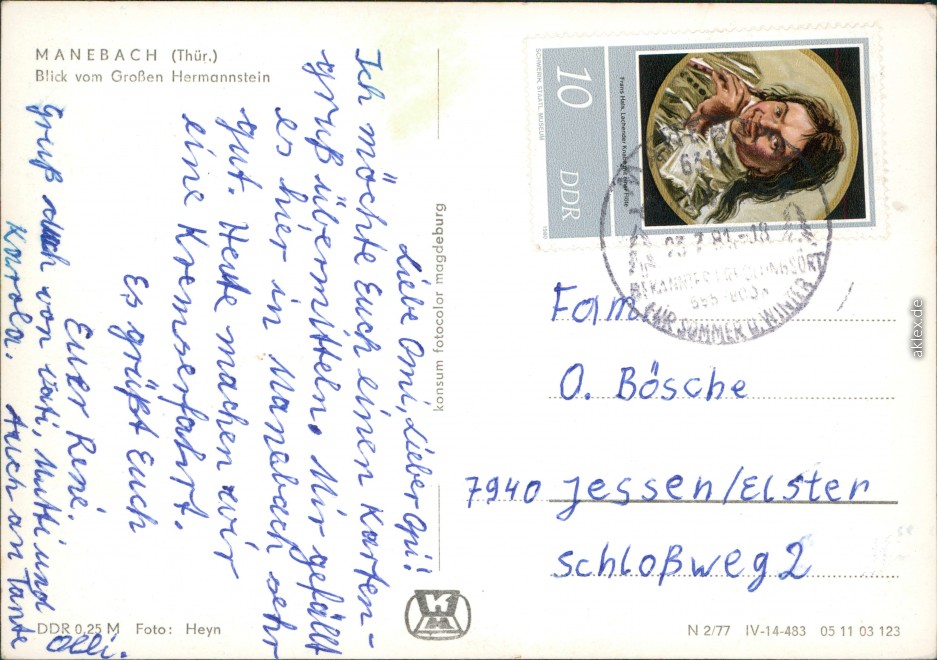 MANEBACH (Thür.)
Blick vom Großen Hermannstein
Liebe Omi, Lieber Opi!
Ich möchte Euch einen Karten-
gruß übermitteln. Mir gefällt
es hier in Manebach sehr
gut. Heute machen wir
eine Kremserfahrt.
Es grüßt Euch
Euer René.
Gruß auch von Vati, Mutti und
Karola. Auch an Tante
Olli.
konsum fotocolor magdeburg
SCHWERIN, STAATL. MUSEUM
10 DDR
Frans Hals, Lachender Knabe mit einer Flöte
1980
23.7.81-18
FÜR SOMMER U. WINTER
Fam.
O. Bösche
7940 Jessen/Elster
Schloßweg 2
DDR 0,25 M Foto: Heyn
N 2/77 IV-14-483 05 11 03 123
aklex.de